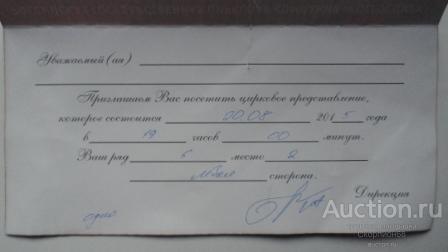 Уважаемый (ая)
Приглашаем Вас посетить цирковое представление,
которое состоится 20.08 2015 года
в 19 часов 00 минут.
Ваш ряд 6 место 2
левая сторона.
Дирекция
одно
Auction.ru